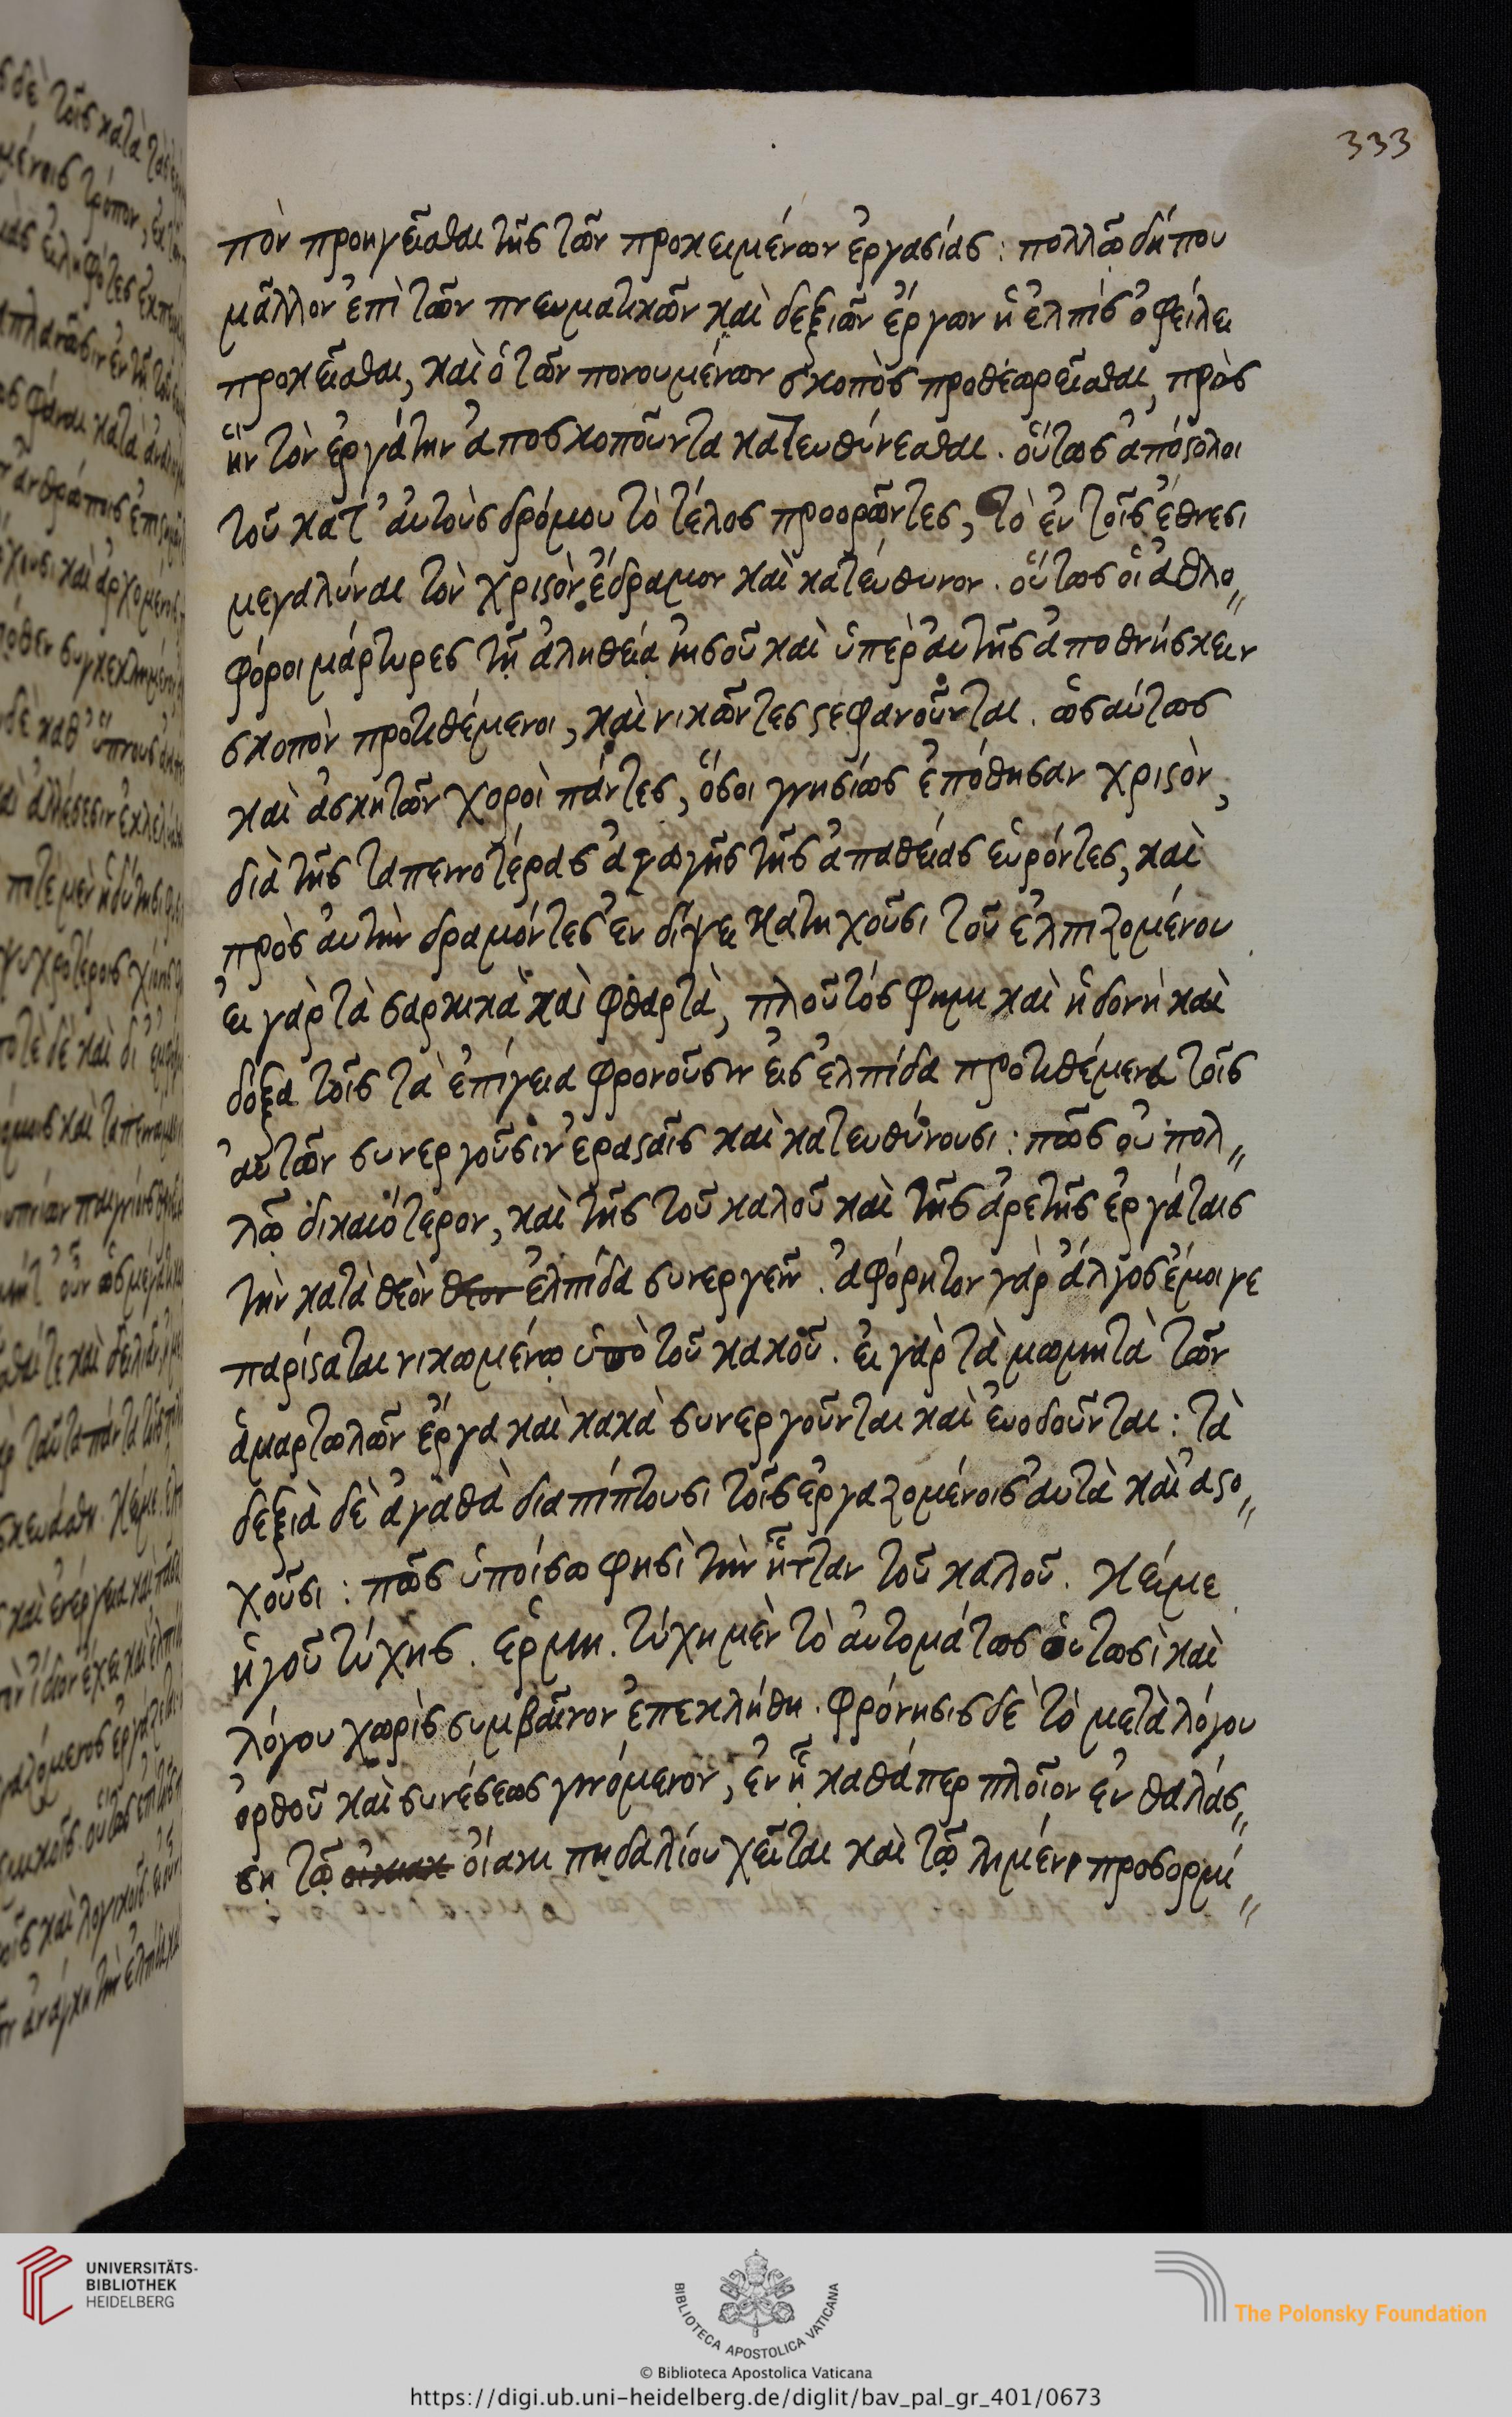 333
πὸν προηγεῖσθαι τῆς τῶν προκειμένων ἐργασίας: πολλῶ δήπου
μᾶλλον ἐπὶ τῶν πνευματικῶν καὶ δεξιῶν ἔργων ἡ ἐλπὶς ὀφείλει
προκεῖσθαι, καὶ ὁ τῶν πονουμένων σκοπὸς προθεωρεῖσθαι, πρὸς
ἣν τὸν ἐργάτην ἀποσκοποῦντα κατευθύνεσθαι. οὕτως ἀπόστολοι
τοῦ κατ' αὐτοὺς δρόμου τὸ τέλος προορῶντες, τὸ ἐν τοῖς ἔθνεσι
μεγαλύναι τὸν χριστὸν ἔδραμον καὶ κατεύθυνον. οὕτως οἱ ἀθλο〃
φόροι μάρτυρες τῇ ἀληθεία ἰησοῦ καὶ ὑπὲρ αὐτῆς ἀποθνήσκειν
σκοπὸν προτιθέμενοι, καὶ νικῶντες στεφανοῦνται. ὡσαύτως
καὶ ἀσκητῶν χοροὶ πάντες, ὅσοι γνησίως ἐπόθησαν χριστὸν,
διὰ τῆς ταπεινοτέρας ἀγωγῆς τῆς ἀπαθείας εὑρόντες, καὶ
πρὸς αὐτὴν δραμόντες ἐν δίψει κατηχοῦσι τοῦ ἐλπιζομένου
εἰ γὰρ τὰ σαρκικὰ καὶ φθαρτὰ, πλοῦτός φημι καὶ ἡδονὴ καὶ
δόξα τοῖς τὰ ἐπίγεια φρονοῦσιν εἰς ἐλπίδα προτιθέμενα τοῖς
αὐτῶν συνεργοῦσιν ἐρασταῖς καὶ κατευθύνουσι: πῶς οὐ πολ〃
λῷ δικαιότερον, καὶ τῆς τοῦ καλοῦ καὶ τῆς ἀρετῆς ἐργάταις
τὴν κατὰ θεὸν θεον ἐλπίδα συνεργεῖν. ἀφόρητον γὰρ ἄλγος ἔμοιγε
παρίσταται νικωμένῳ ὑπὸ τοῦ κακοῦ. εἰ γὰρ τὰ μωμητὰ τῶν
ἁμαρτωλῶν ἔργα καὶ κακὰ συνεργοῦνται καὶ εὐοδοῦνται: τὰ
δεξιὰ δὲ ἀγαθὰ διαπίπτουσι τοῖς ἐργαζομένοις αὐτὰ καὶ ἀστο〃
χοῦσι: πῶς ὑποίσω φησὶ τὴν ἧτταν τοῦ καλοῦ. κείμε
ἡγοῦ τύχης. ἑρμη. τύχη μὲν τὸ αὐτομάτως οὑτωσὶ καὶ
λόγου χωρὶς συμβαῖνον ἐπεκλήθη. φρόνησις δὲ τὸ μετὰ λόγου
ὀρθοῦ καὶ συνέσεως γινόμενον, ἐν ᾗ καθάπερ πλοῖον ἐν θαλάσ〃
σῃ τῷ οἴακι πηδαλίου χεῖται καὶ τῷ λιμένι προσορμί〃
UNIVERSITÄTS-
BIBLIOTHEK
HEIDELBERG
BIBLIOTECA APOSTOLICA VATICANA
The Polonsky Foundation
© Biblioteca Apostolica Vaticana
https://digi.ub.uni-heidelberg.de/diglit/bav_pal_gr_401/0673